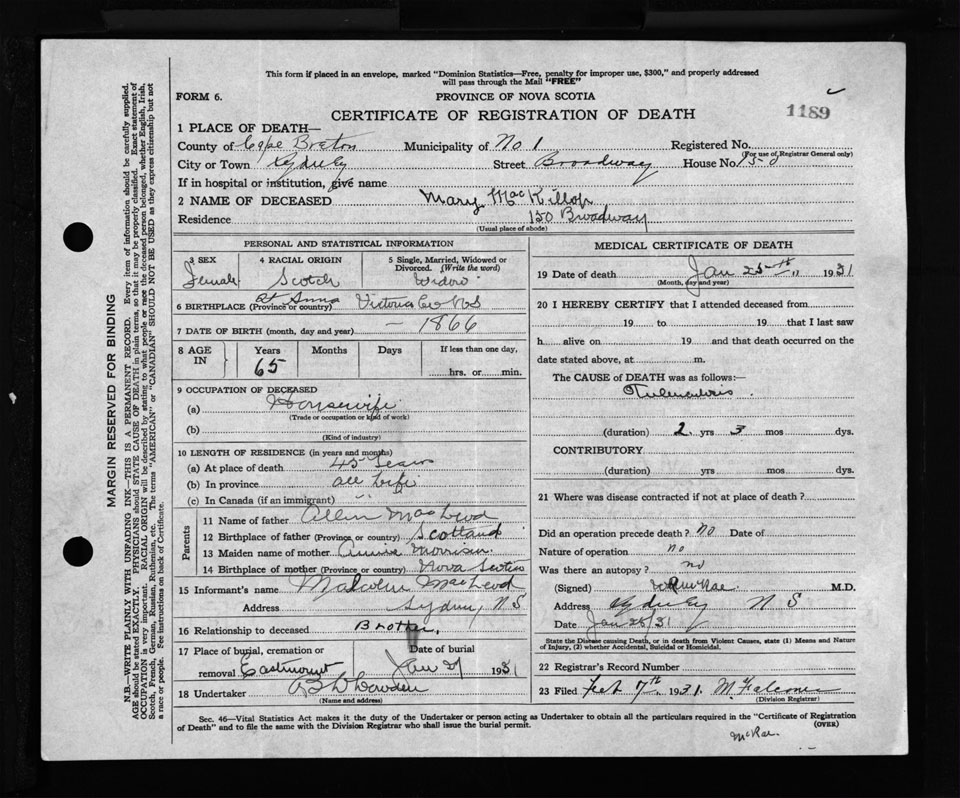 This form if placed in an envelope, marked "Dominion Statistics—Free, penalty for improper use, $300," and properly addressed
will pass through the Mail "FREE"
FORM 6.
PROVINCE OF NOVA SCOTIA
1189
CERTIFICATE OF REGISTRATION OF DEATH
1 PLACE OF DEATH—
County of Cape Breton Municipality of No 1 Registered No.
(For use of Registrar General only)
City or Town Sydney Street Broadway House No 150
If in hospital or institution, give name
2 NAME OF DECEASED Mary MacKillop
Residence 150 Broadway
(Usual place of abode)
PERSONAL AND STATISTICAL INFORMATION
3 SEX Female
4 RACIAL ORIGIN Scotch
5 Single, Married, Widowed or Divorced. (Write the word) Widow
6 BIRTHPLACE (Province or country) St Anns Victoria Co NS
7 DATE OF BIRTH (month, day and year) — 1866
8 AGE IN Years 65 Months Days If less than one day, hrs. or min.
9 OCCUPATION OF DECEASED
(a) Housewife
(Trade or occupation or kind of work)
(b)
(Kind of industry)
10 LENGTH OF RESIDENCE (in years and months)
(a) At place of death 45 Years
(b) In province all life
(c) In Canada (if an immigrant) " "
Parents
11 Name of father Allen MacLeod
12 Birthplace of father (Province or country) Scotland
13 Maiden name of mother Annie Morrison
14 Birthplace of mother (Province or country) Nova Scotia
15 Informant's name Malcolm MacLeod
Address Sydney, N S
16 Relationship to deceased Brother,
17 Place of burial, cremation or removal Eastmount
Date of burial Jan 27 1931
18 Undertaker
(Name and address)
MEDICAL CERTIFICATE OF DEATH
19 Date of death Jan 25th 1931
(Month, day and year)
20 I HEREBY CERTIFY that I attended deceased from
19 to 19 that I last saw
h alive on 19 and that death occurred on the
date stated above, at m.
The CAUSE of DEATH was as follows:—
(duration) 2 yrs 3 mos dys.
CONTRIBUTORY
(duration) yrs mos dys.
21 Where was disease contracted if not at place of death?
Did an operation precede death? no Date of
Nature of operation no
Was there an autopsy? no
(Signed) M.D.
Address Sydney N S
Date Jan 26/31
State the Disease causing Death, or in death from Violent Causes, state (1) Means and Nature
of Injury, (2) whether Accidental, Suicidal or Homicidal.
22 Registrar's Record Number
23 Filed Feb 7th 1931
(Division Registrar)
Sec. 46—Vital Statistics Act makes it the duty of the Undertaker or person acting as Undertaker to obtain all the particulars required in the "Certificate of Registration
of Death" and to file the same with the Division Registrar who shall issue the burial permit.
(OVER)
McRae.
MARGIN RESERVED FOR BINDING
N.B.—WRITE PLAINLY WITH UNFADING INK—THIS IS A PERMANENT RECORD. Every item of information should be carefully supplied.
AGE should be stated EXACTLY. PHYSICIANS should STATE CAUSE OF DEATH in plain terms, so that it may be properly classified. Exact statement of
OCCUPATION is very important. RACIAL ORIGIN will be described by stating to what people or race the deceased person belonged, whether English, Irish,
Scotch, French, German, Russian, Ruthenian, etc. The terms "AMERICAN" or "CANADIAN" SHOULD NOT BE USED as they express citizenship but not
a race or people. See instructions on back of Certificate.